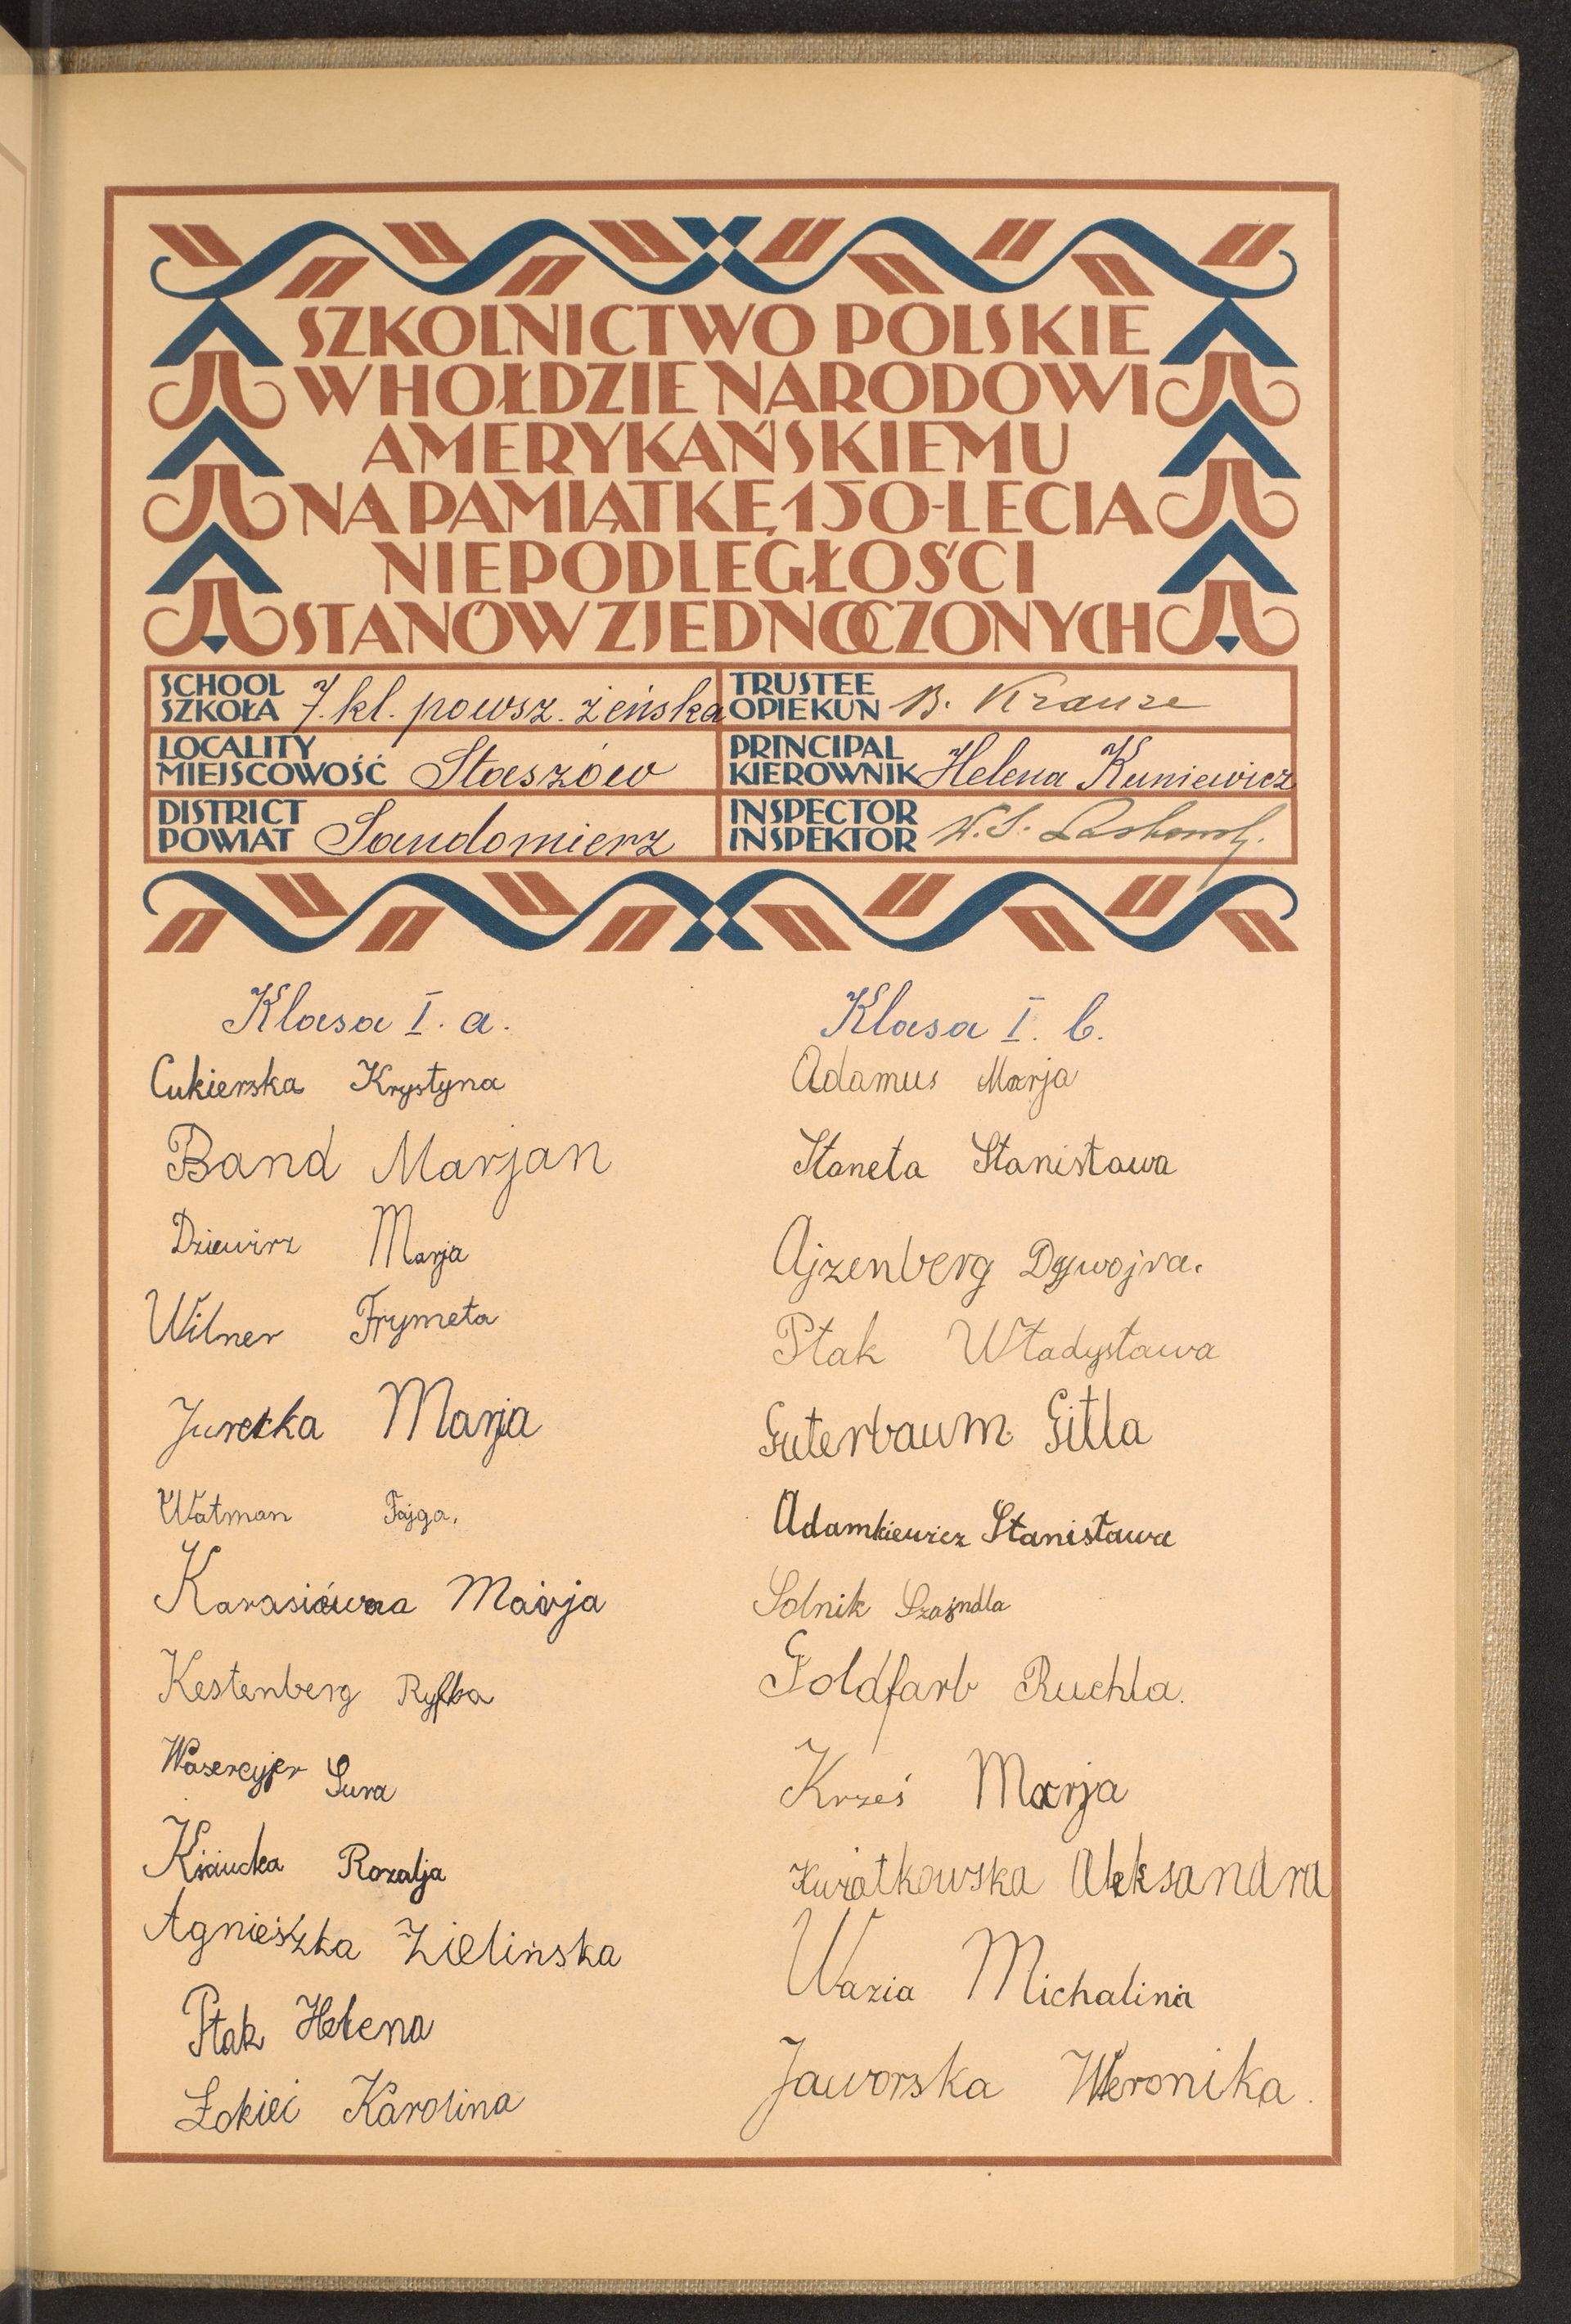 SZKOLNICTWO POLSKIE
W HOŁDZIE NARODOWI
AMERYKAŃSKIEMU
NA PAMIĄTKĘ 150-LECIA
NIEPODLEGŁOŚCI
STANÓW ZJEDNOCZONYCH
SCHOOL
SZKOŁA 7. kl. powsz. żeńska
TRUSTEE
OPIEKUN B. Krauze
LOCALITY
MIEJSCOWOŚĆ Staszów
PRINCIPAL
KIEROWNIK Helena Kuniewicz
DISTRICT
POWIAT Sandomierz
INSPECTOR
INSPEKTOR W. S.
Klasa I. a.
Cukierska Krystyna
Band Marjan
Dziewirz Marja
Wilner Frymeta
Jurecka Marja
Watman Fajga.
Karasiówna Marja
Kestenberg Ryfka
Wasercyjer Sura
Rozalja
Agnieszka Zielińska
Ptak Helena
Łokieć Karolina
Klasa I. b.
Adamus Marja
Staneta Stanisława
Ajzenberg Dywojra.
Ptak Władysława
Guterbaum Gitla
Adamkiewicz Stanisława
Solnik Szajndla
Goldfarb Ruchla.
Krześ Marja
Kwiatkowska Aleksandra
Wazia Michalina
Jaworska Weronika.